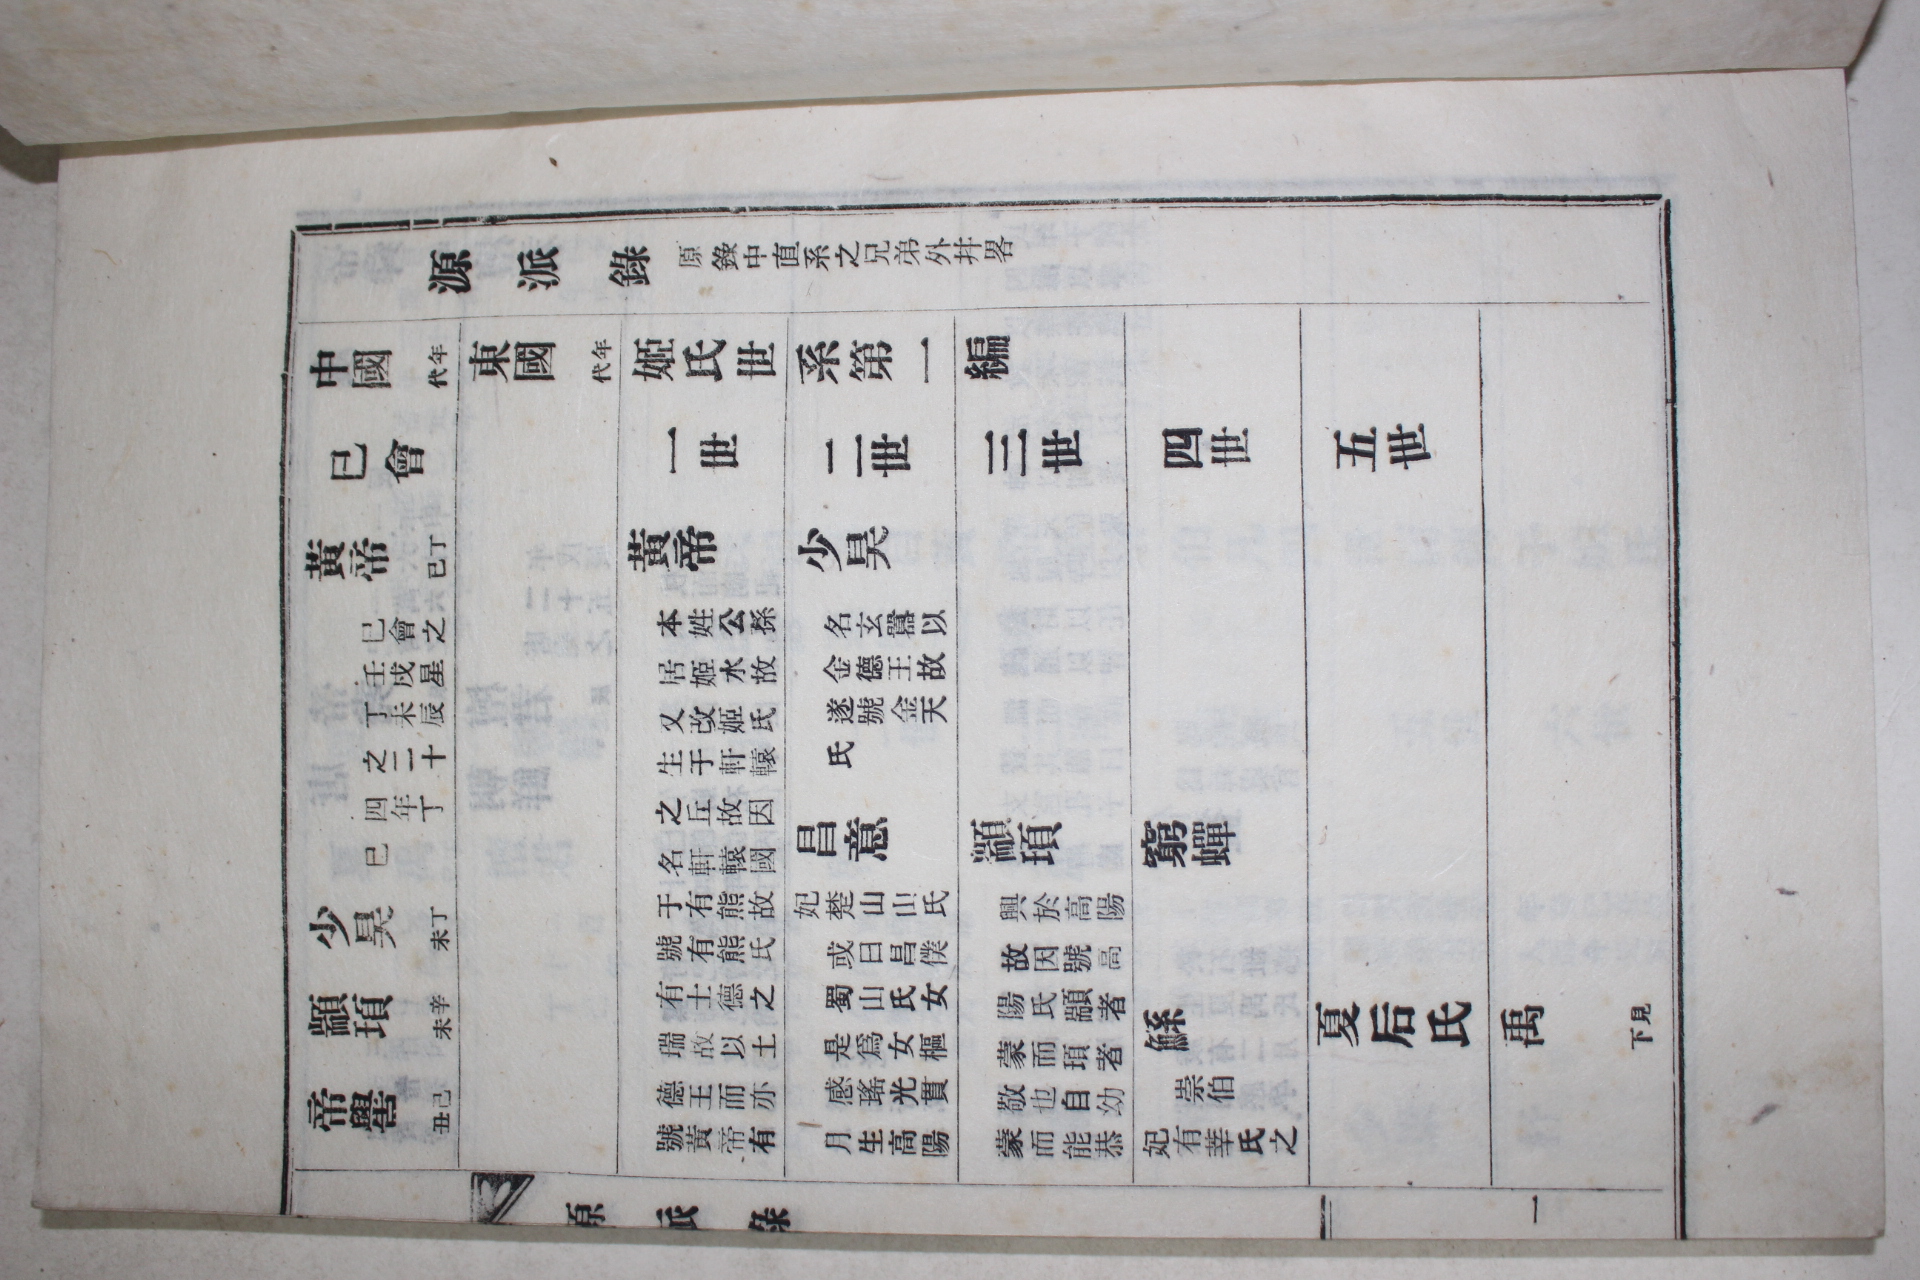 源派錄 原錄中直系之兄弟外幷畧
中國年代
東國年代
姬氏世系第一編
巳會
一世
二世
三世
四世
五世
黃帝 丁巳
巳會之
壬戌星
丁未辰
之二十
四年丁
巳
少昊 丁未
顓頊 辛未
帝嚳 己丑
黃帝
本姓公孫
居姬水故
又改姬氏
生于軒轅
之丘故因
名軒轅國
于有熊故
號有熊氏
有土德之
瑞故以土
德王而亦
號黃帝有
少昊
名玄囂以
金德王故
遂號金天
氏
昌意
妃楚山山氏
或曰昌僕
蜀山氏女
是爲女樞
感瑤光貫
月生高陽
顓頊
興於高陽
故因號高
陽氏顓者
蒙而頊者
敬也自幼
蒙而能恭
窮蟬
鯀
崇伯
妃有莘氏之
夏后氏
禹 下見
源派錄
一